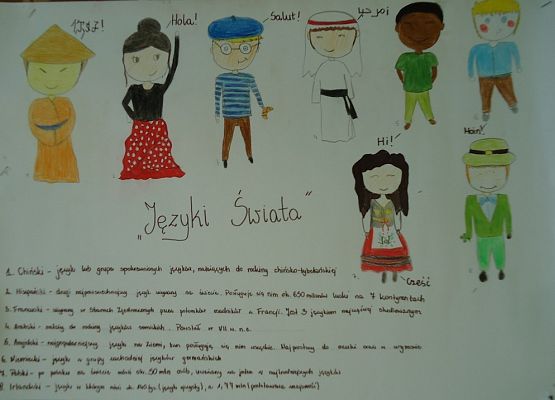 Hola!
Salut!
مرحبا
Hi!
Cześć
„Języki Świata"
1. Chiński - języki lub grupa spokrewnionych języków, należących do rodziny chińsko-tybetańskiej
2. Hiszpański - drugi najpowszechniejszy język używany na świecie. Posługuje się nim ok. 650 milionów ludzi na 7 kontynentach
3. Francuski - używany w Stanach Zjednoczonych przez potomków osadników z Francji. Jest 3 językiem najczęściej studiowanym
4. Arabski - należy do rodziny języków semickich. Powstał w VII w. n.e.
5. Angielski - najpopularniejszy język na Ziemi, bowiem posługują się nim wszędzie. Najprostszy do nauki oraz w wymowie
6. Niemiecki - język z grupy zachodniej języków germańskich
7. Polski - po polsku na świecie mówi ok. 50 mln osób, uważany za jeden z najtrudniejszych języków
8. Irlandzki - język w którym mówi ok.